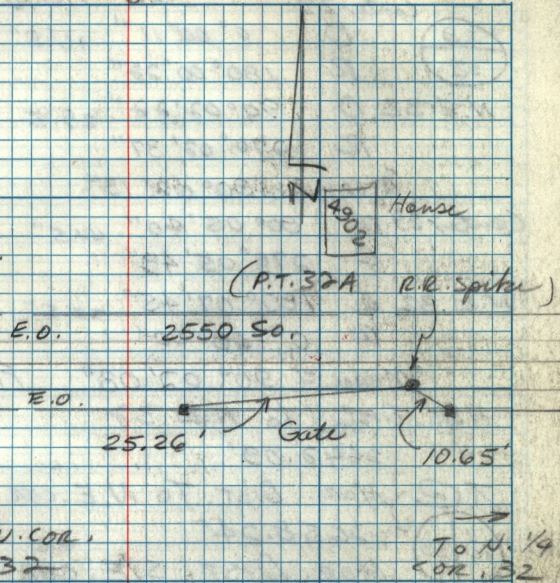 N
4902 House
(P.T. 32A R.R. Spike)
E.O. 2550 So.
E.O.
25.26' Gate
10.65'
COR. To N. 1/4
32 COR. 32